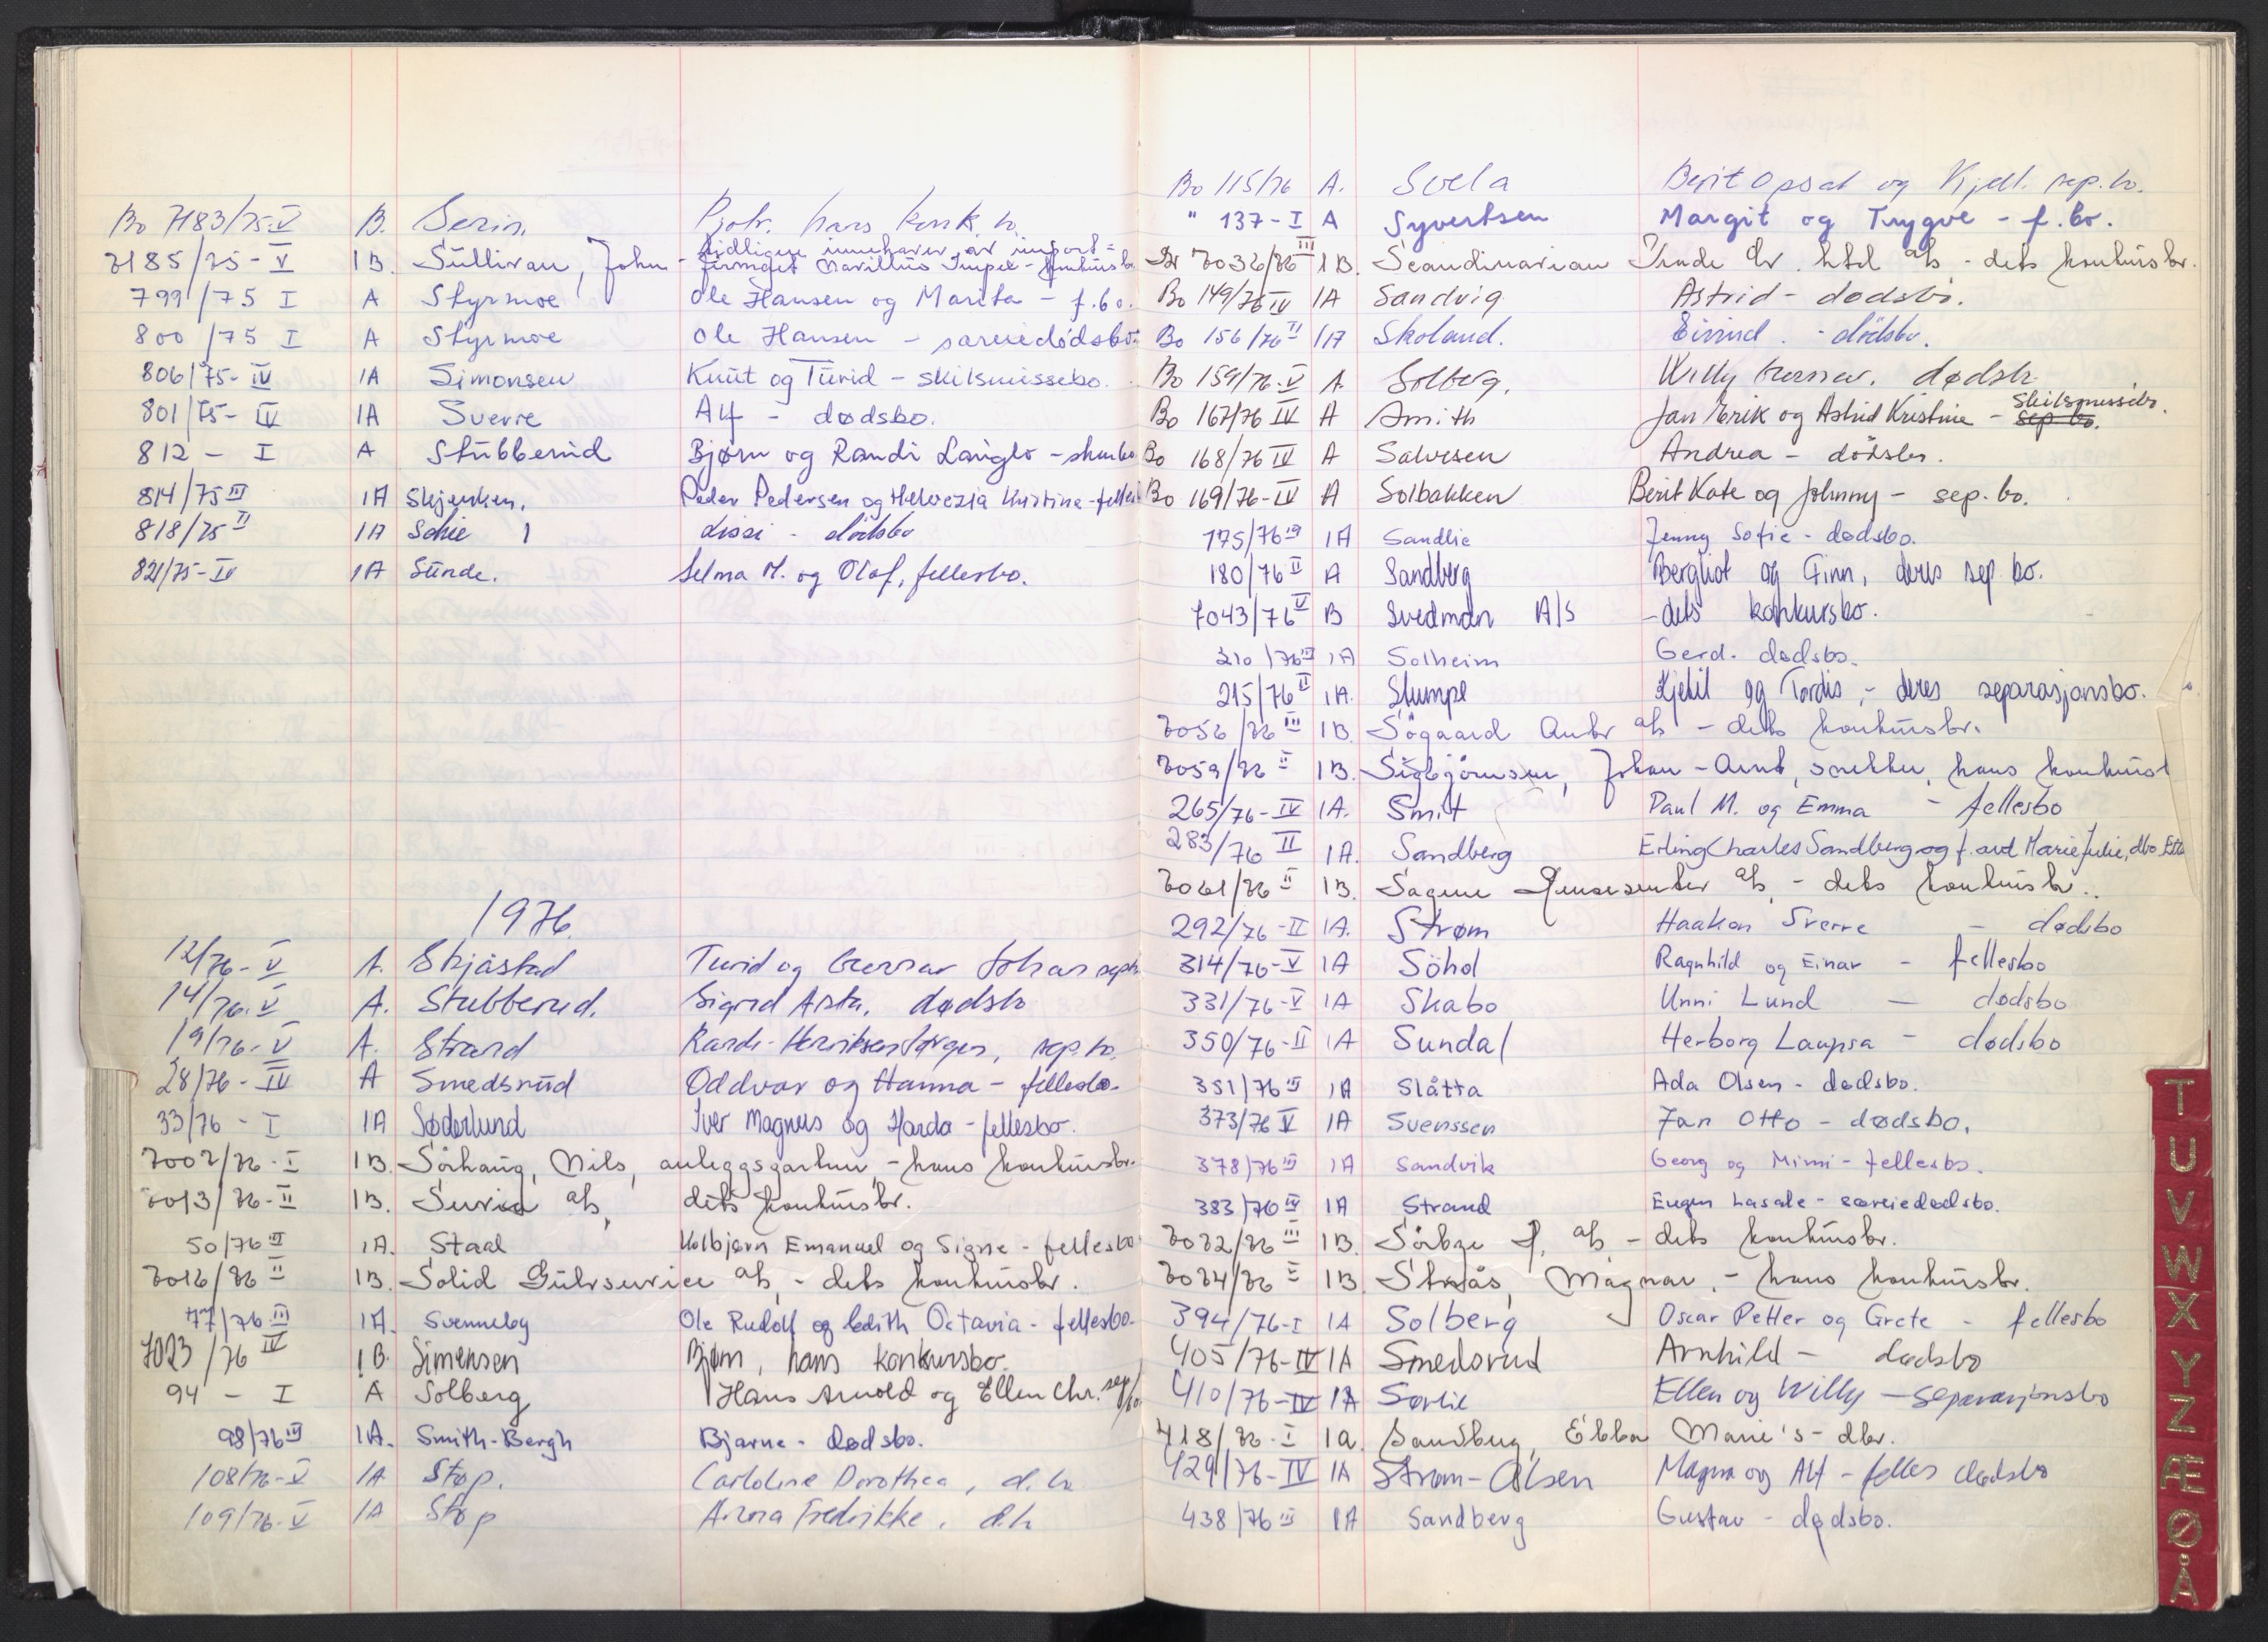 Bo 7183/75-V B. Serin, Pjotr. hans konk.b.
7185/75-V 1B. Sullivan, John - tidligere innehaver av import=
firmaet Marillus Impex - konkursb.
799/75 I A Styrmoe Ole Hansen og Marita - f.bo.
800/75 I A Styrmoe Ole Hansen - særeiedødsbo.
806/75-IV 1A Simonsen Knut og Turid - skilsmissebo.
801/75-IV 1A Sverre Alf - dødsbo.
812 - I A Stubberud Bjørn og Randi Langlo - sk
814/75 III 1A Skjenken, Peder Pedersen og Helvezia Kristine - felles
818/75 II 1A Schie Lissi - dødsbo
821/75-IV 1A Sunde. Selma M. og Olaf, fellesbo.
1976.
12/76-V A. Skjåstad Turid og Gunnar Johan sepb.
14/76-V A. Stubberud, Sigrid Asta, dødsbo
19/76-V A. Strand Randi Henriksen Jørgen, sep.bo.
28/76-IV A Smedsrud Oddvar og Hanna - fellesbo.
33/76 - I 1A Søderlund Iver Magnus og Harda - fellesbo.
7002/76-I 1B. Sørhaug, Nils, anleggsgartner, - hans konkursbo.
7013/76-II 1B. a/s, dets konkursbo.
50/76 III 1A. Staal Kolbjørn Emanuel og Signe - fellesbo
7016/76 II 1B. Solid Gulvservice a/s, - dets konkursbo.
77/76 III 1A. Svenneby Ole Rudolf og Edith Octavia - fellesbo.
7023/76 IV 1B. Simensen Bjørn, hans konkursbo.
94 - I A Solberg Hans Arnold og Ellen Chr. sep/bo.
98/76 III 1A. Smith-Bergh Bjarne - dødsbo.
108/76-V 1A Støp. Caroline Dorothea, d.b.
109/76-V 1A Støp Anna Fredrikke, d.b.
Bo 115/76 A. Svela Berit Opsal og Kjell. sep.bo.
" 137-I A Syvertsen Margit og Trygve - f.bo.
Bo 7036/76 III 1B. Scandinavian Trade Ltd a/s - dets konkursbo.
Bo 149/76 IV 1A Sandvig Astrid - dødsbo.
Bo 156/76 II 1A Skoland. Eivind. - dødsbo.
Bo 159/76-V A Solberg, Willy Gunnar. dødsb.
Bo 167/76 IV A Smith Jan Erik og Astrid Kristine - Skilsmissebo. sep.bo.
Bo 168/76 IV A Salvesen Andrea - dødsbo.
Bo 169/76-IV A Solbakken Berit Kate og Johnny - sep.bo.
175/76 III 1A Sandlie Jenny Sofie - dødsbo.
180/76 II A Sandberg Bergliot og Finn, deres sep.bo.
7043/76 V B Svedman A/S - dets konkursbo.
210/76 III 1A Solheim Gerd - dødsbo.
215/76 II 1A. Slumpe Kjetil og Tordis, - deres separasjonsbo.
7056/76 III 1B. Søgaard a/s - dets konkursbo.
7059/76 II 1B. Sigbjørnsen, Johan - Arnt, snekker, hans konkursb
265/76-IV 1A. Smit Paul M. og Emma - fellesbo
283/76 II 1A. Sandberg Erling Charles Sandberg og f. avd Marie Julie, dbo
7061/76 II 1B. Sagene a/s, - dets konkursbo.
292/76-II 1A. Strøm Haakon Sverre - dødsbo
314/76-V 1A Söhol Ragnhild og Einar - fellesbo
331/76-V 1A Skabo Unni Lund - dødsbo
350/76-II 1A Sundal Herborg Laupsa - dødsbo
351/76 III 1A Slåtta Ada Olsen - dødsbo.
373/76 V 1A Svenssen Jan Otto - dødsbo.
378/76 III 1A Sandvik Georg og Mimi - fellesbo.
383/76 IV 1A Strand Eugen Lasale - særeiedødsbo.
7072/76 III 1B. a/s - dets konkursbo.
7074/76 I 1B. Magnar, - hans konkursbo.
394/76-I 1A Solberg Oscar Petter og Grete - fellesbo
405/76-IV 1A Smedsrud Arnhild - dødsbo
410/76-IV 1A Sørlie Ellen og Willy - Separasjonsbo
418/76-I 1a. Sandberg, Ebba Marie's - dbo.
429/76-IV 1A Strøm-Olsen Magna og Alf - felles dødsbo
438/76 III 1A Sandberg Gustav - dødsbo.
T
U
V
W
X
Y
Z
Æ
Ø
Å